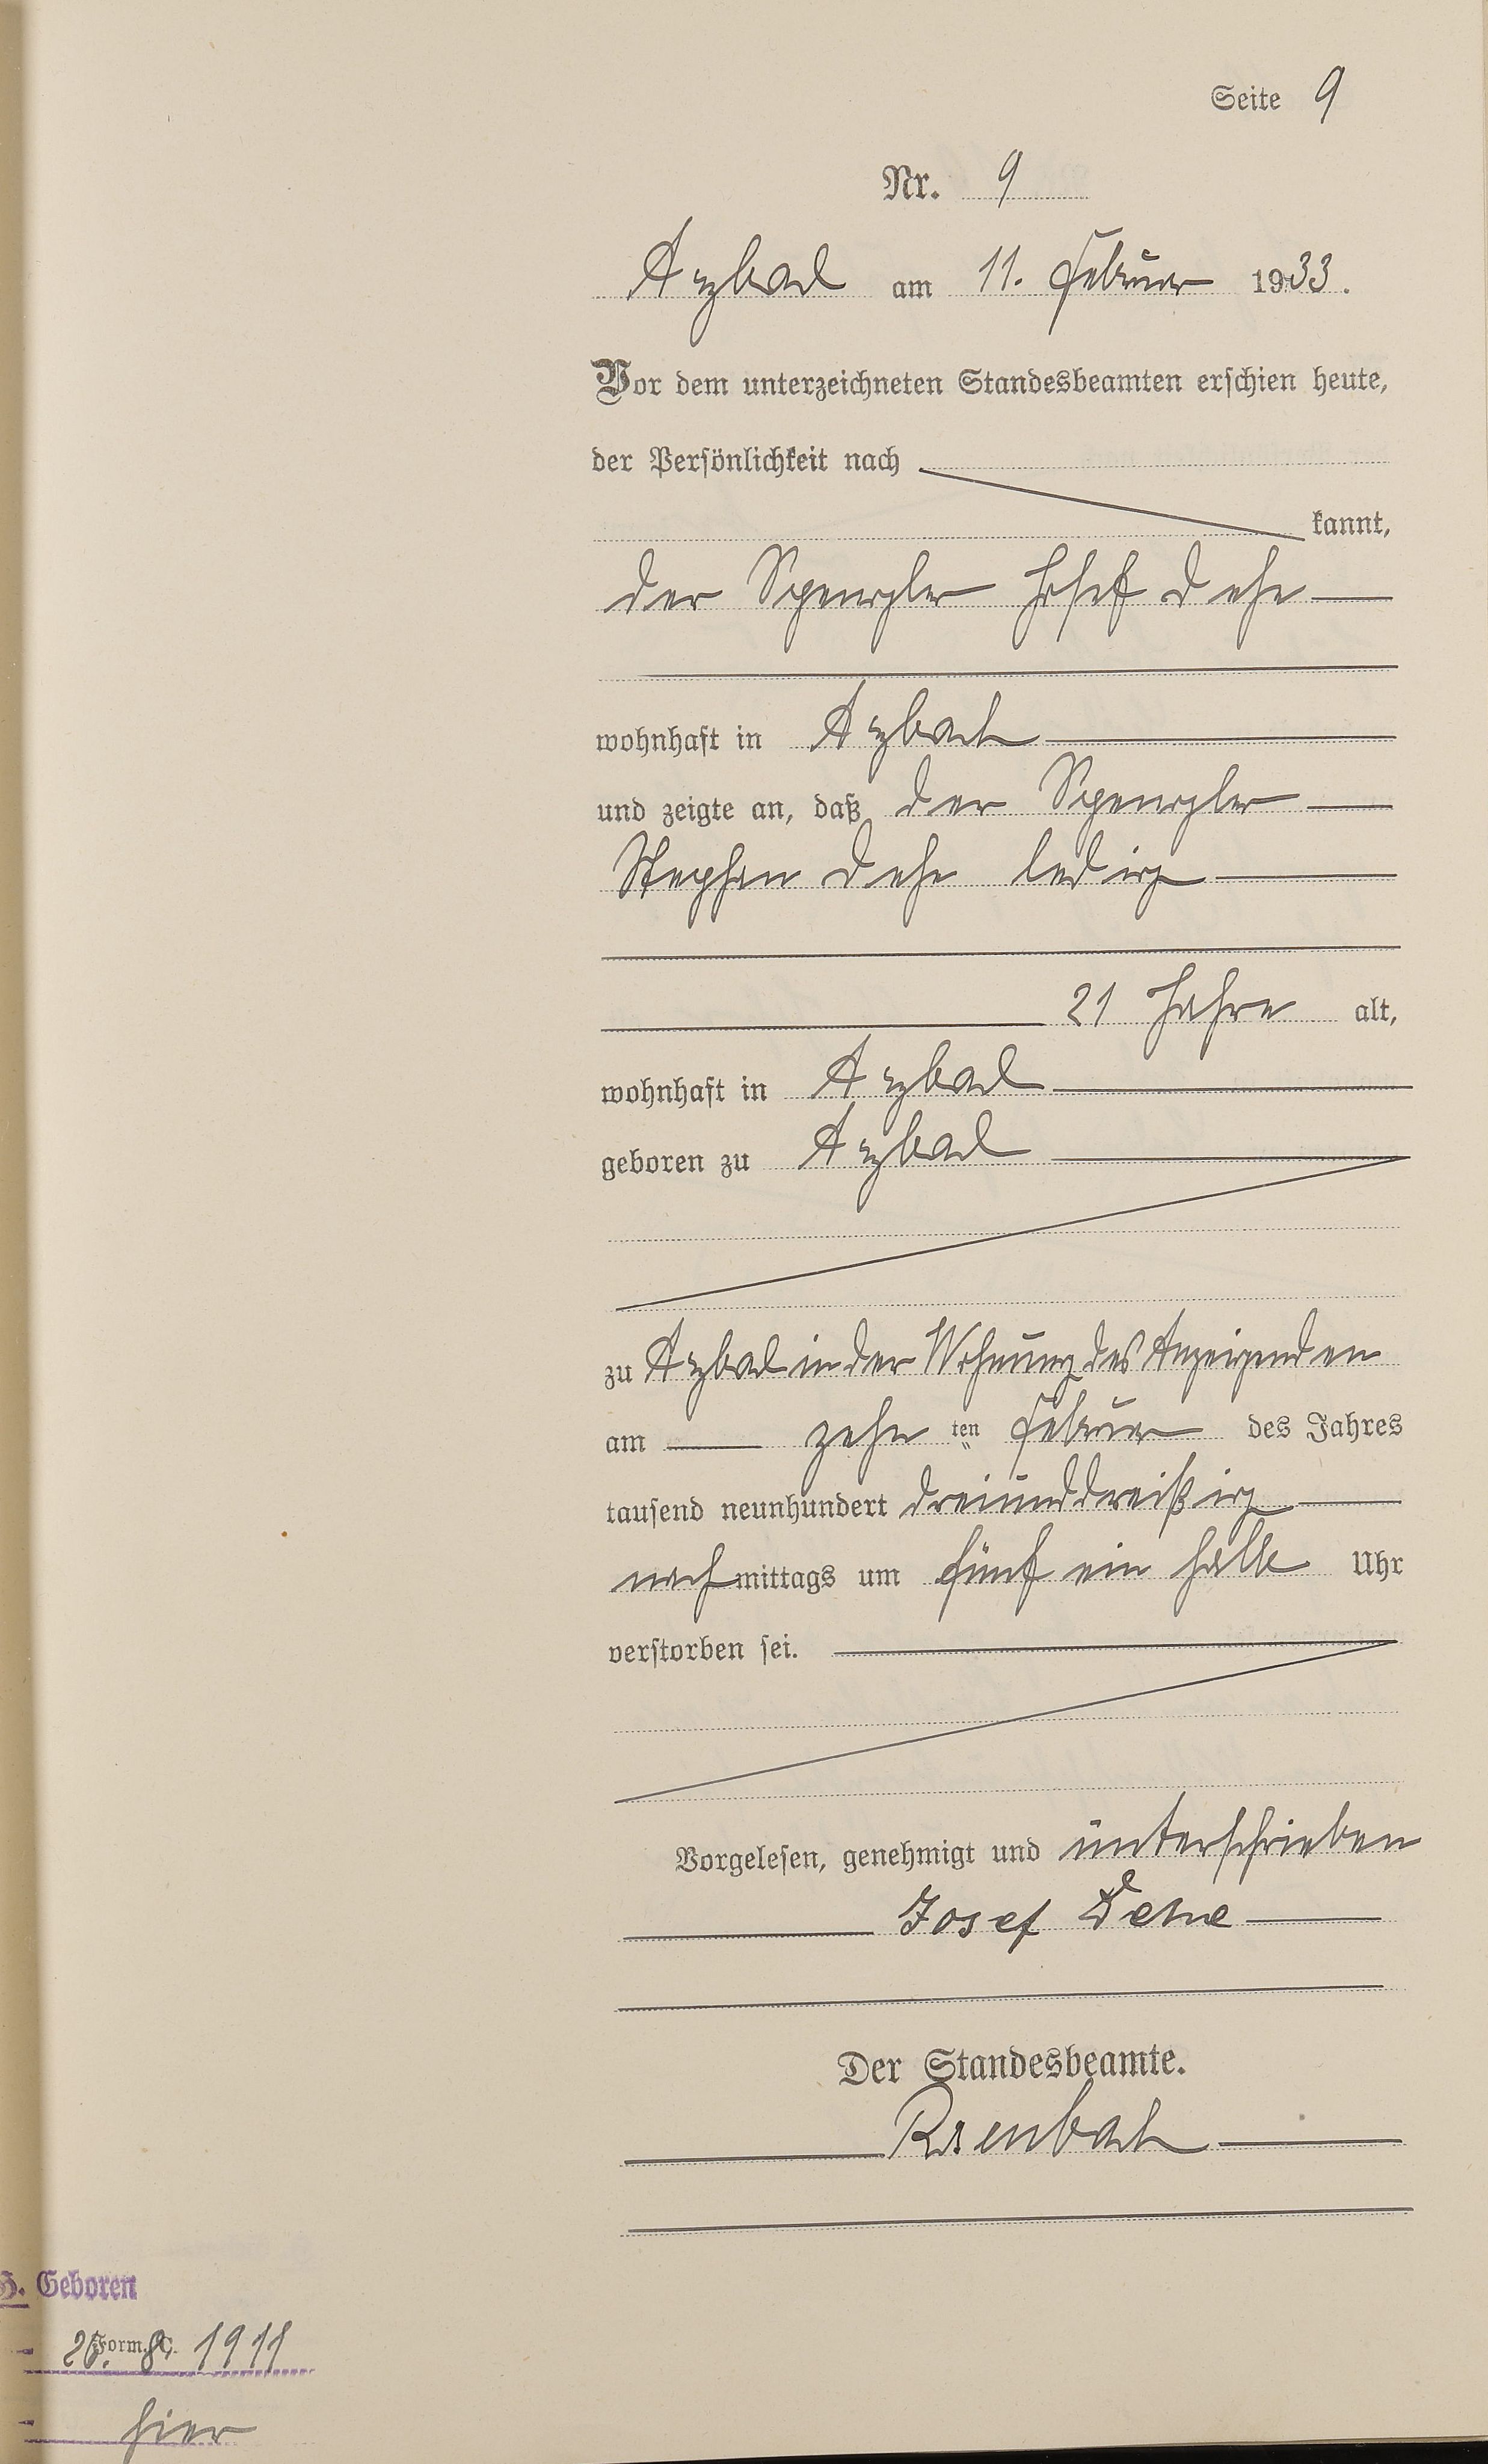 Seite 9
Nr. 9
Arzbach am 11. Februar 1933.
Vor dem unterzeichneten Standesbeamten erschien heute,
der Persönlichkeit nach
kannt,
der Spengler Josef Dehe
wohnhaft in Arzbach
und zeigte an, daß der Spengler
Stephan Dehe ledig
21 Jahre alt,
wohnhaft in Arzbach
geboren zu Arzbach
zu Arzbach in der Wohnung des Anzeigenden
am zehn ten Februar des Jahres
tausend neunhundert dreiunddreißig
nachmittags um fünf ein halb Uhr
verstorben sei.
Vorgelesen, genehmigt und unterschrieben
Josef Dehe
Der Standesbeamte.
Geboren
Form. C.
8. 1911
hier